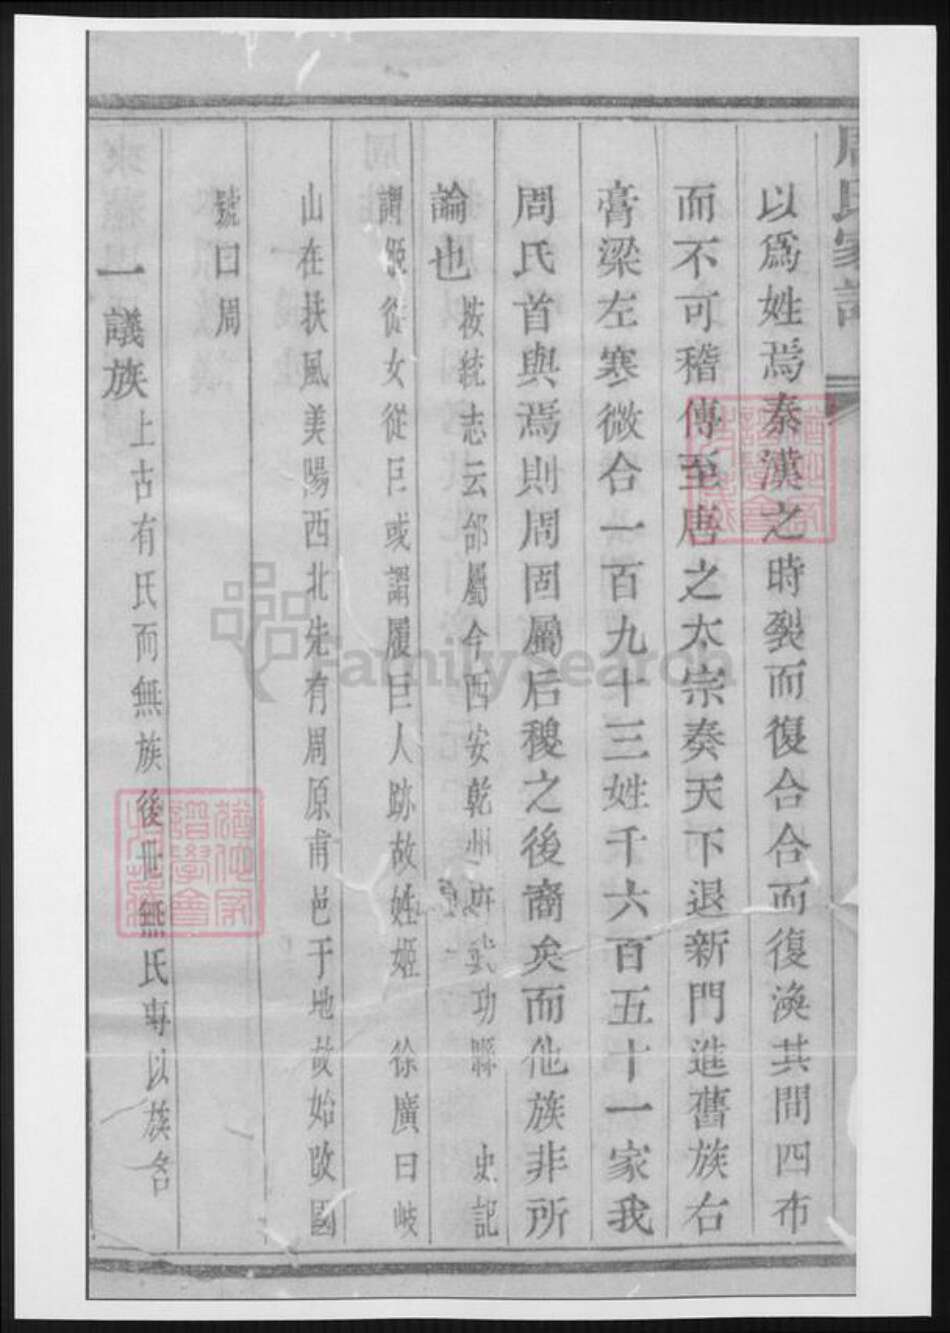 周氏家譜
以爲姓焉秦漢之時裂而復合合而復渙其間四布
而不可稽傳至唐之太宗奏天下退新門進舊族右
膏梁左寒微合一百九十三姓千六百五十一家我
周氏首與焉則周固屬后稷之後裔矣而他族非所
論也 按統志云邰屬今西安乾州府武功縣 史記
謂姬從女從𦣞或謂履巨人跡故姓姬 徐廣曰岐
山在扶風美陽西北先有周原甫邑于地故始改國
號曰周
一議族 上古有氏而無族後世無氏專以族名
FamilySearch